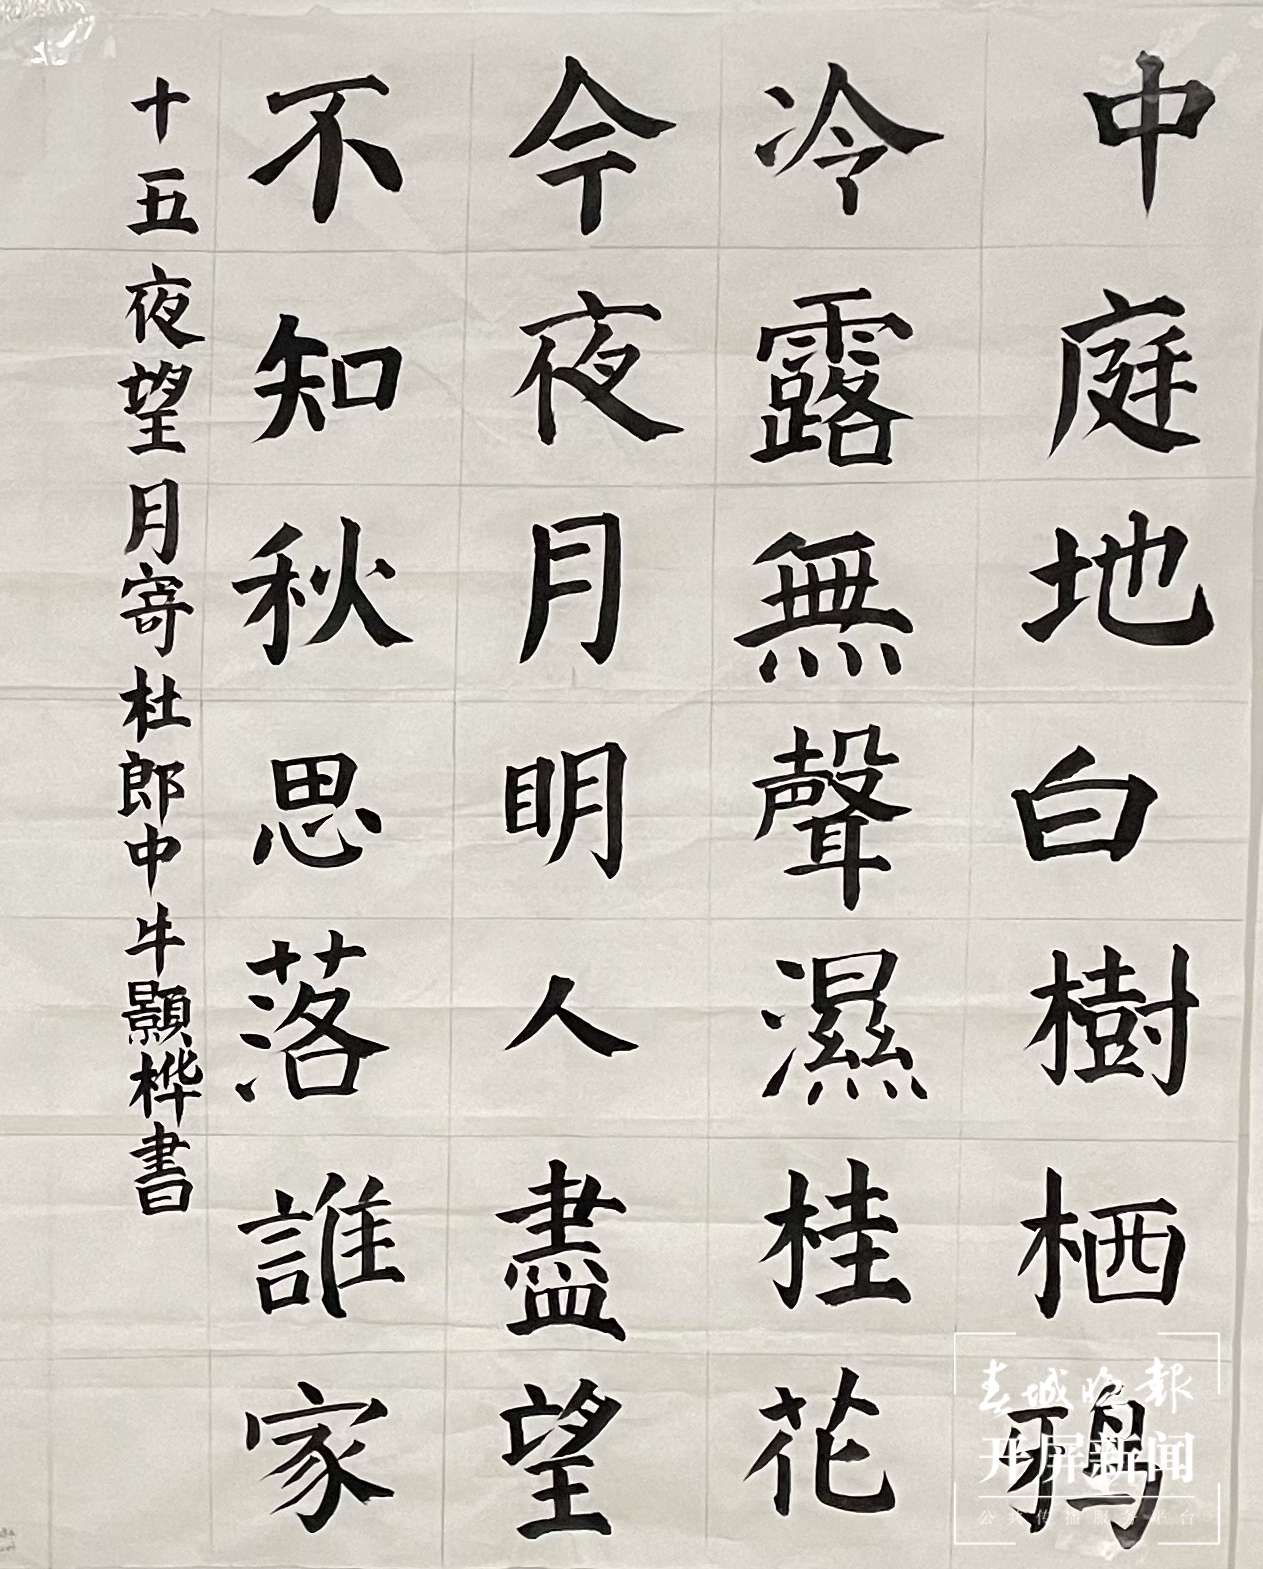 中庭地白樹栖鴉
冷露無聲濕桂花
今夜月明人盡望
不知秋思落誰家
十五夜望月寄杜郎中牛顥桦書
春城晚報
开屏新闻
公共传播服务平台